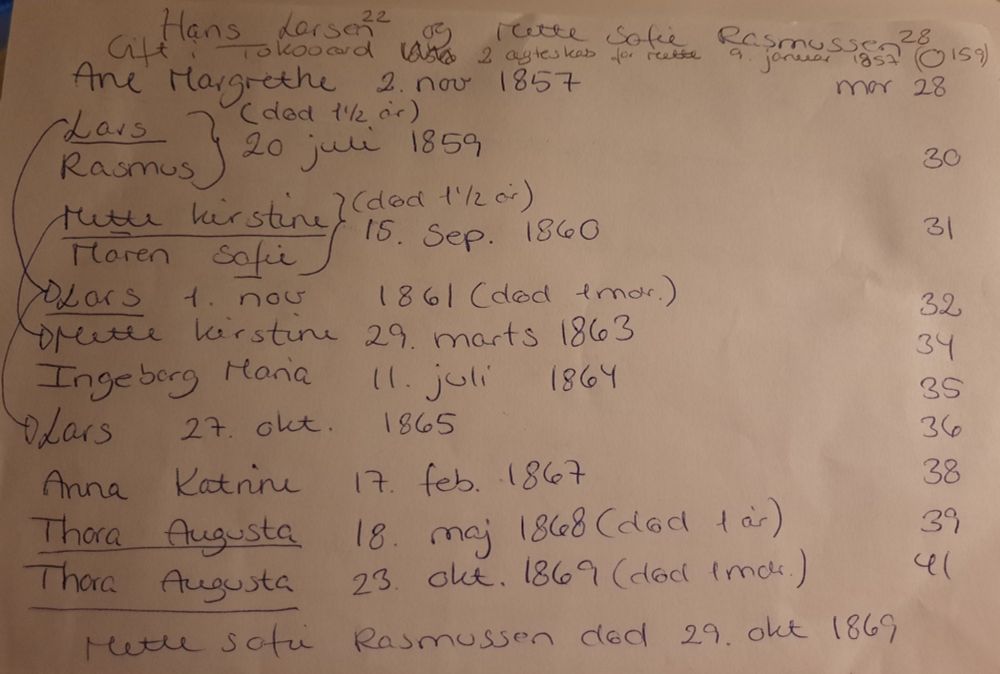 Hans Larsen 22 og Mette Sofie Rasmussen 28
Gift i 2 ægteskab for Mette 9. januar 1857 (O 159)
Ane Margrethe 2. nov 1857 mor 28
Lars (død 1 1/2 år)
Rasmus 20 juli 1859 30
Mette Kirstine (død 1 1/2 år)
Maren Sofie 15. Sep. 1860 31
Lars 1. nov 1861 (død 1 mdr.) 32
Mette Kirstine 29. marts 1863 34
Ingeborg Maria 11. juli 1864 35
Lars 27. okt. 1865 36
Anna Katrine 17. feb. 1867 38
Thora Augusta 18. maj 1868 (død 1 år) 39
Thora Augusta 23. okt. 1869 (død 1 mdr.) 41
Mette Sofie Rasmussen død 29. okt 1869